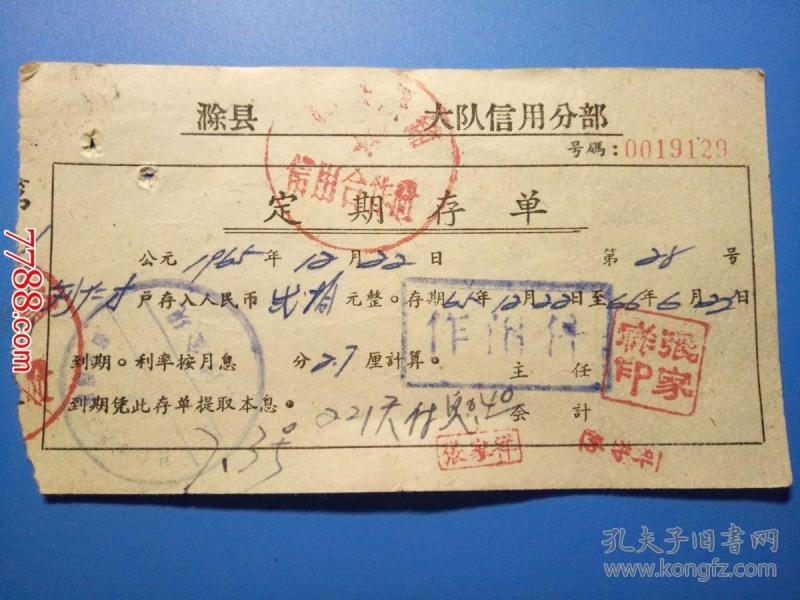 滁县 大队信用分部
号碼：0019129
信用合作社
定期存单
公元 1965 年 12 月 22 日 第 28 号
户存入人民币 贰拾 元整。存期 65 年 12 月 22 日至 66 年 6 月 22 日
作附件
張家祥印
到期。利率按月息 分 2.7 厘計算。 主任
到期凭此存单提取本息。 221天付息 会計
張家祥
7.35
7788.com
孔夫子旧书网
kongfz.com